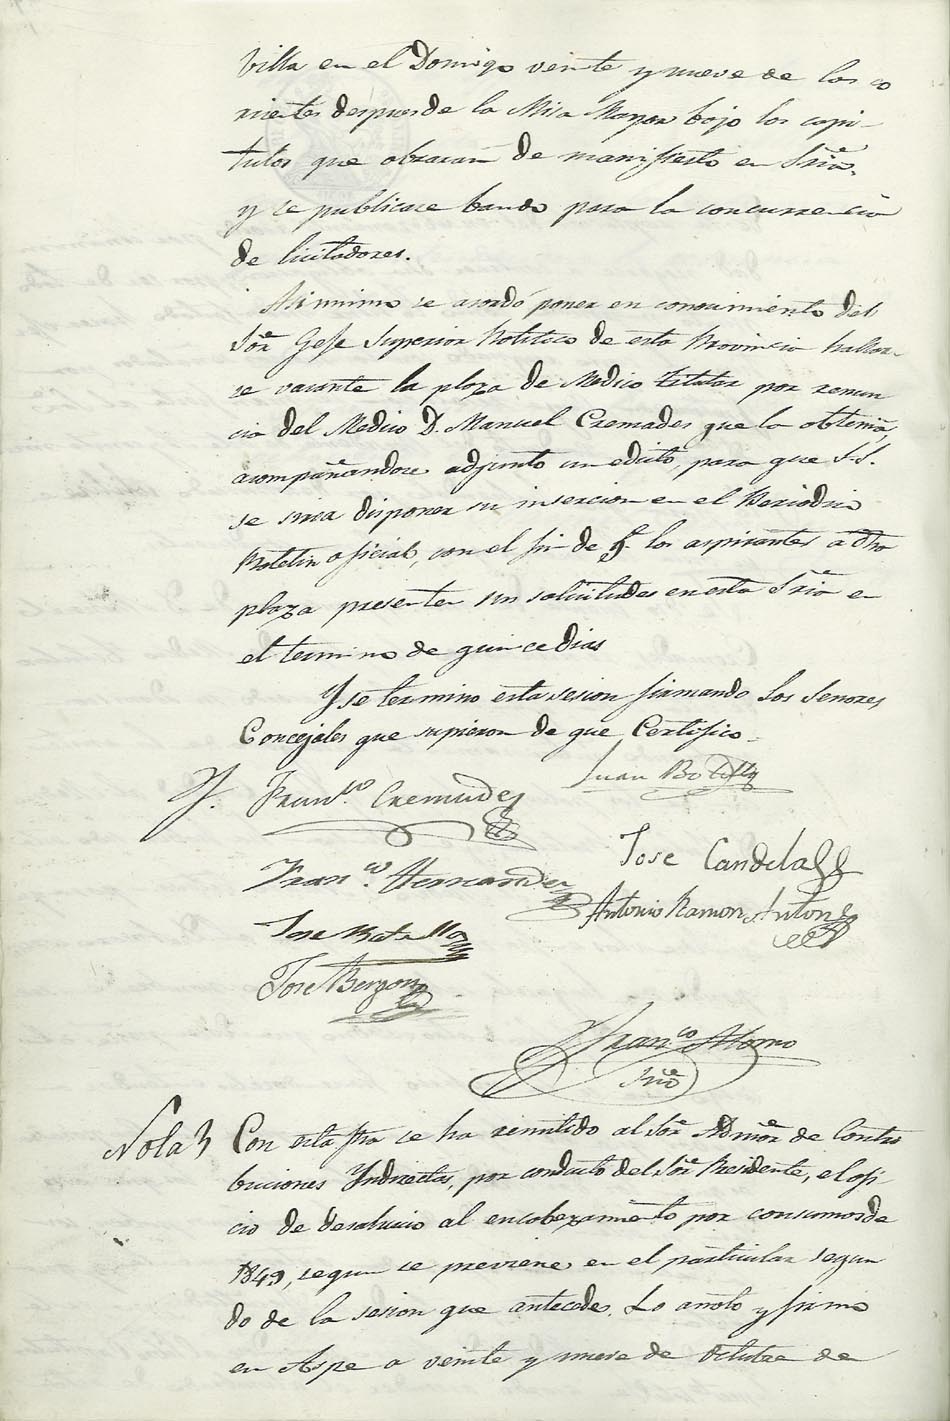 Villa en el Domingo veinte y nueve de los co
rrientes despues de la Misa Mayor bajo los capi-
tulos que obraran de manifiesto en Sria.
y se publicase bando para la concurrencia
de licitadores.
Asi mismo se acordó poner en conocimiento del
Sor Gefe Superior Politico de esta Provincia hallar-
se vacante la plaza de Medico titular por renun
cia del Medico D. Manuel Cremades que la obtenia,
acompañandose adjunto un edicto, para que S.S.
se sirva disponer su insercion en el Periodico
Boletin oficial, con el fin de q. los aspirantes a dha
plaza presenten sus solicitudes en esta Sria en
el termino de quince dias
Y se termino esta sesion firmando los Señores
Concejales que supieron de que Certifico.
Juan Botella
Franco. Cremades
Jose Candela
Franco. Hernandez
Antonio Ramon Anton
Jose Botella
Jose Berzon
Franco Alonso
Srio
Nota Con esta fha se ha remitido al Sor Admor de Contri
buciones Yndirectas, por conducto del Sor Presidente, el ofi-
cio de desahucio al encabezamiento por consumos de
1849, segun se previene en el particular segun
do de la sesion que antecede. Lo anoto y firmo
en Aspe a veinte y nueve de Octubre de